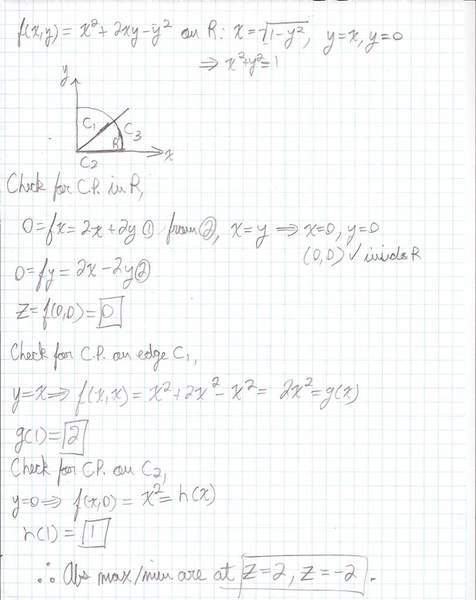 f(x,y) = x² + 2xy - y² on R: x = √1-y², y=x, y=0
⇒ x²+y²=1
y
C₁
C₃
R
C₂
x
Check for C.P. in R,
0=fx=2x+2y ① from ②, x=y ⇒ x=0, y=0
(0,0) ✓ inside R
0=fy=2x-2y ②
z=f(0,0)=0
Check for C.P. on edge C₁,
y=x ⇒ f(x,x) = x²+2x²-x² = 2x²=g(x)
g(1)=2
Check for C.P. on C₂,
y=0 ⇒ f(x,0) = x² = h(x)
h(1) = 1
∴ Abs max/min are at z=2, z=-2.